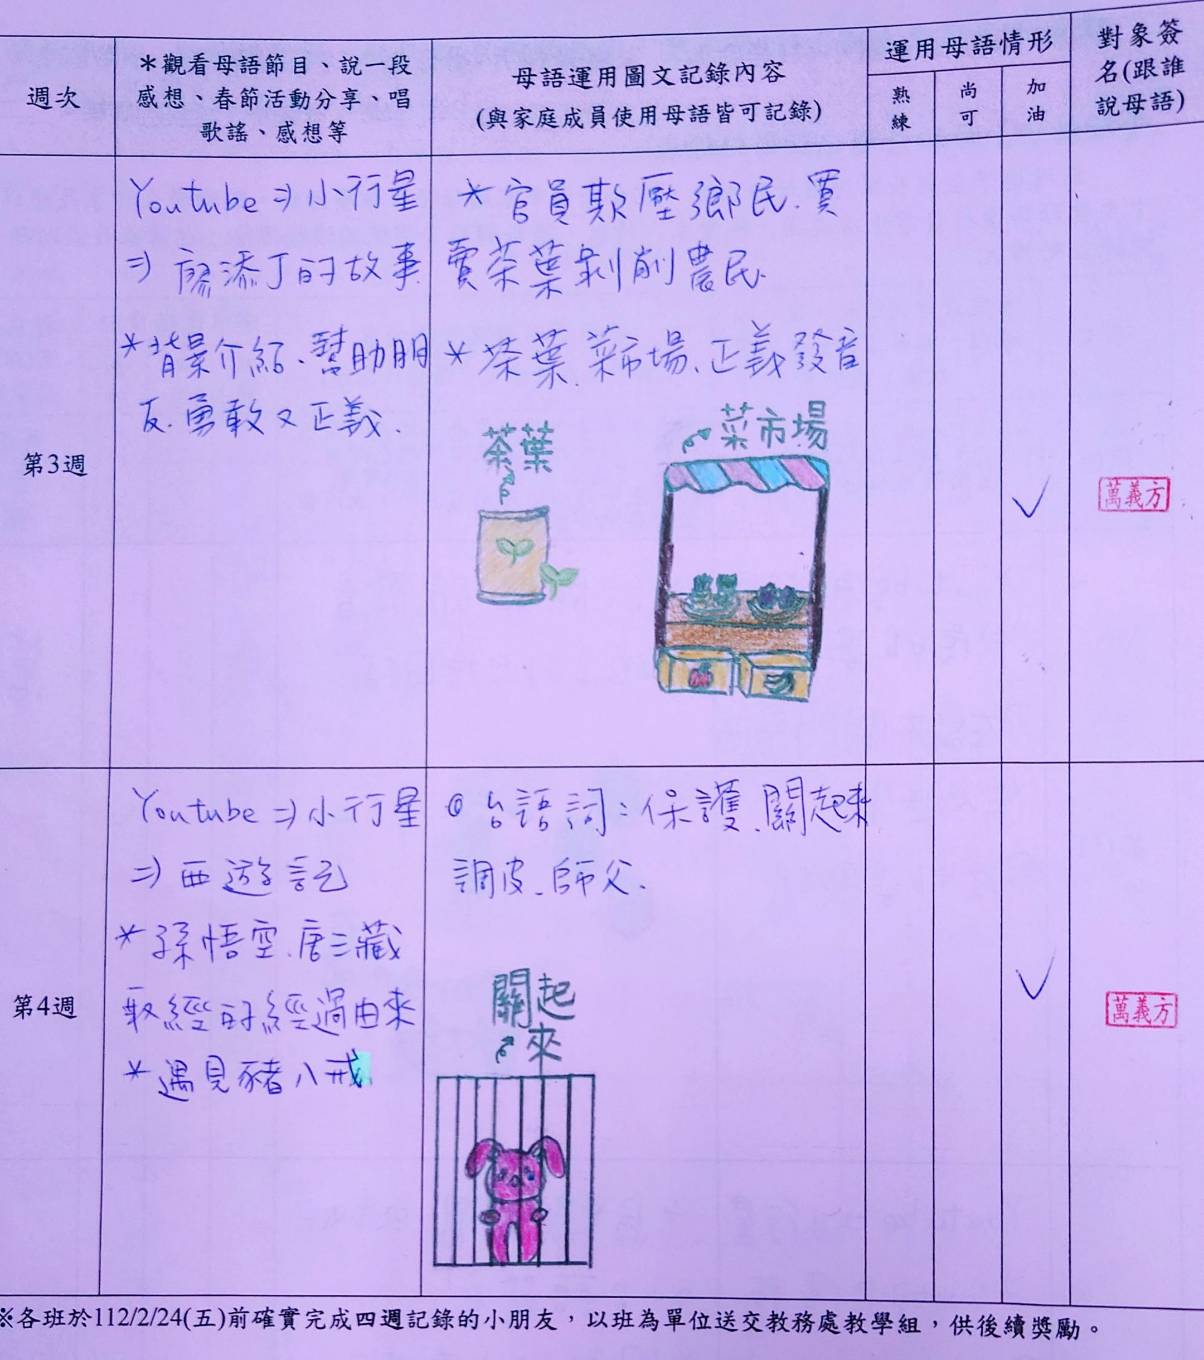 週次
＊觀看母語節目、說一段
感想、春節活動分享、唱
歌謠、感想等
母語運用圖文記錄內容
(與家庭成員使用母語皆可記錄)
運用母語情形
熟練
尚可
加油
對象簽
名(跟誰
說母語)
第3週
Youtube⇒小行星
⇒廖添丁的故事
＊背景介紹、幫助朋
友、勇敢又正義.
＊官員欺壓鄉民、買
賣茶葉剝削農民.
＊茶葉、菜市場、正義發音
茶葉
菜市場
萬義方
第4週
Youtube⇒小行星
⇒西遊記
＊孫悟空、唐三藏
取經的經過由來
＊遇見豬八戒
◎台語詞:保護、關起來
調皮、師父.
關起
來
萬義方
※各班於112/2/24(五)前確實完成四週記錄的小朋友，以班為單位送交教務處教學組，供後續獎勵。